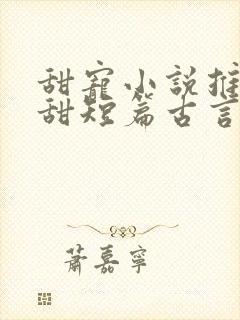 甜寵小說推
甜短篇古言
蕭嘉寧